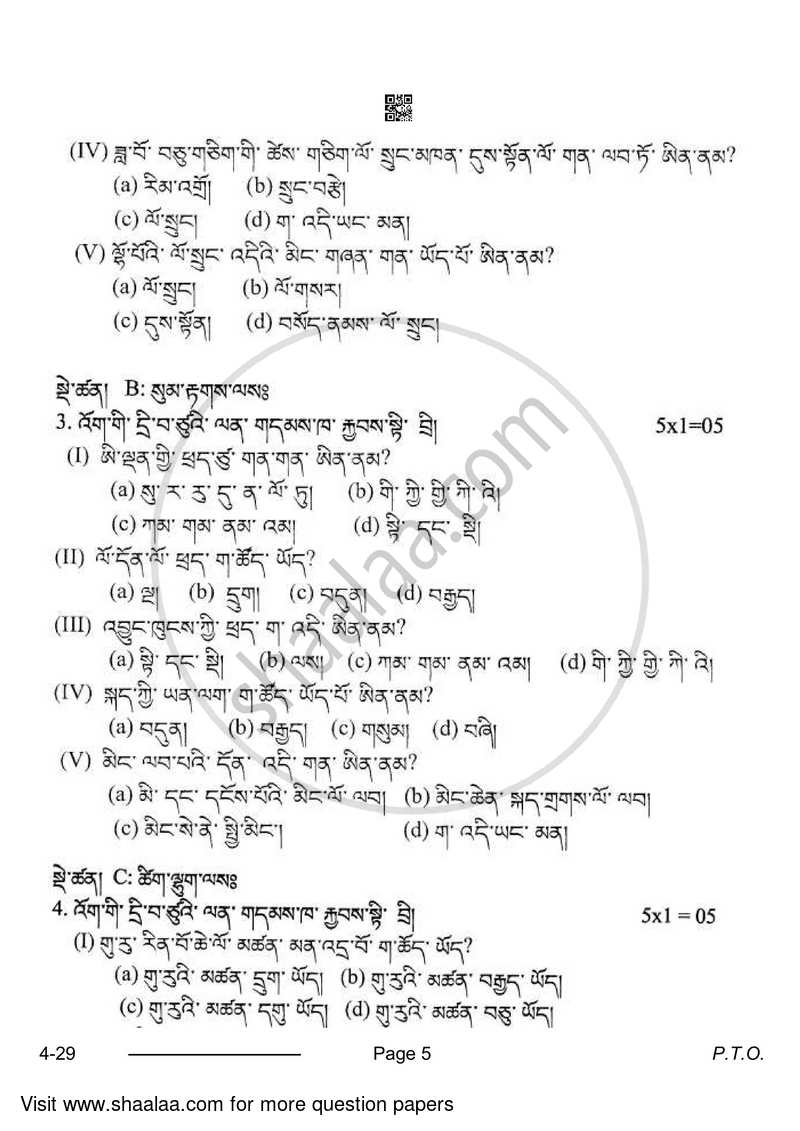 (IV) ཟླ་བོ་ བཅུ་གཅིག་གི་ ཚེས་ གཅིག་ལོ་ སྲུང་མཁན་ དུས་སྟོན་ལོ་ གན་ ལབ་ཏོ་ ཨིན་ནམ?
(a) རིམ་འགྲོ། (b) སྲུང་བརྩེ།
(c) ལོ་སྲུང། (d) ག་ འདི་ཡང་ མན།
(V) ལྷོ་པོའི་ ལོ་སྲུང་ འདིའི་ མིང་ གཞན་ གན་ ཡོད་པོ་ ཨིན་ནམ?
(a) ལོ་སྲུང། (b) ལོ་གསར།
(c) དུས་སྟོན། (d) བསོད་ནམས་ ལོ་ སྲུང།
སྡེ་ཚན། B: སུམ་རྟགས་ལསཿ
3. འོག་གི་ དྲི་བ་ཙུའི་ ལན་ གདམས་ཁ་ རྐྱབས་སྟི་ བྲི། 5x1=05
(I) ཨི་ལྡན་གྱི་ ཕྲད་ཙུ་ གན་གན་ ཨིན་ནམ?
(a) སུ་ ར་ རུ་ དུ་ ན་ ལོ་ ཏུ། (b) གི་ ཀྱི་ གྱི་ ཀི་ འི།
(c) ཀམ་ གམ་ ནམ་ འམ། (d) སྟི་ དང་ སྡི།
(II) ལོ་དོན་ལོ་ ཕྲད་ ག་ཚོད་ ཡོད?
(a) ལྔ། (b) དྲུག། (c) བདུན། (d) བརྒྱད།
(III) འབྱུང་ཁུངས་ཀྱི་ ཕྲད་ ག་ འདི་ ཨིན་ནམ?
(a) སྟི་ དང་ སྡི། (b) ལས། (c) ཀམ་ གམ་ ནམ་ འམ། (d) གི་ ཀྱི་ གྱི་ ཀི་ འི།
(IV) སྐད་ཀྱི་ ཡན་ལག་ ག་ཚོད་ ཡོད་པོ་ ཨིན་ནམ?
(a) བདུན། (b) བརྒྱད། (c) གསུམ། (d) བཞི།
(V) མིང་ ལབ་པའི་ དོན་ འདི་ གན་ ཨིན་ནམ?
(a) མི་ དང་ དངོས་པོའི་ མིང་ལོ་ ལབ། (b) མིང་ཆེན་ སྐད་གྲགས་ལོ་ ལབ།
(c) མིང་སེ་ནེ་ སྤྱི་མིང་། (d) ག་ འདི་ཡང་ མན།
སྡེ་ཚན། C: ཚིག་ལྷུག་ལསཿ
4. འོག་གི་ དྲི་བ་ཙུའི་ ལན་ གདམས་ཁ་ རྐྱབས་སྟི་ བྲི། 5x1 = 05
(I) གུ་རུ་ རིན་པོ་ཆེ་ལོ་ མཚན་ མན་འདྲ་བོ་ ག་ཚོད་ ཡོད?
(a) གུ་རུའི་ མཚན་ དྲུག་ ཡོད། (b) གུ་རུའི་ མཚན་ བརྒྱད་ ཡོད།
(c) གུ་རུའི་ མཚན་ དགུ་ ཡོད། (d) གུ་རུའི་ མཚན་ བཅུ་ ཡོད།
4-29 Page 5 P.T.O.
Visit www.shaalaa.com for more question papers
shaalaa.com